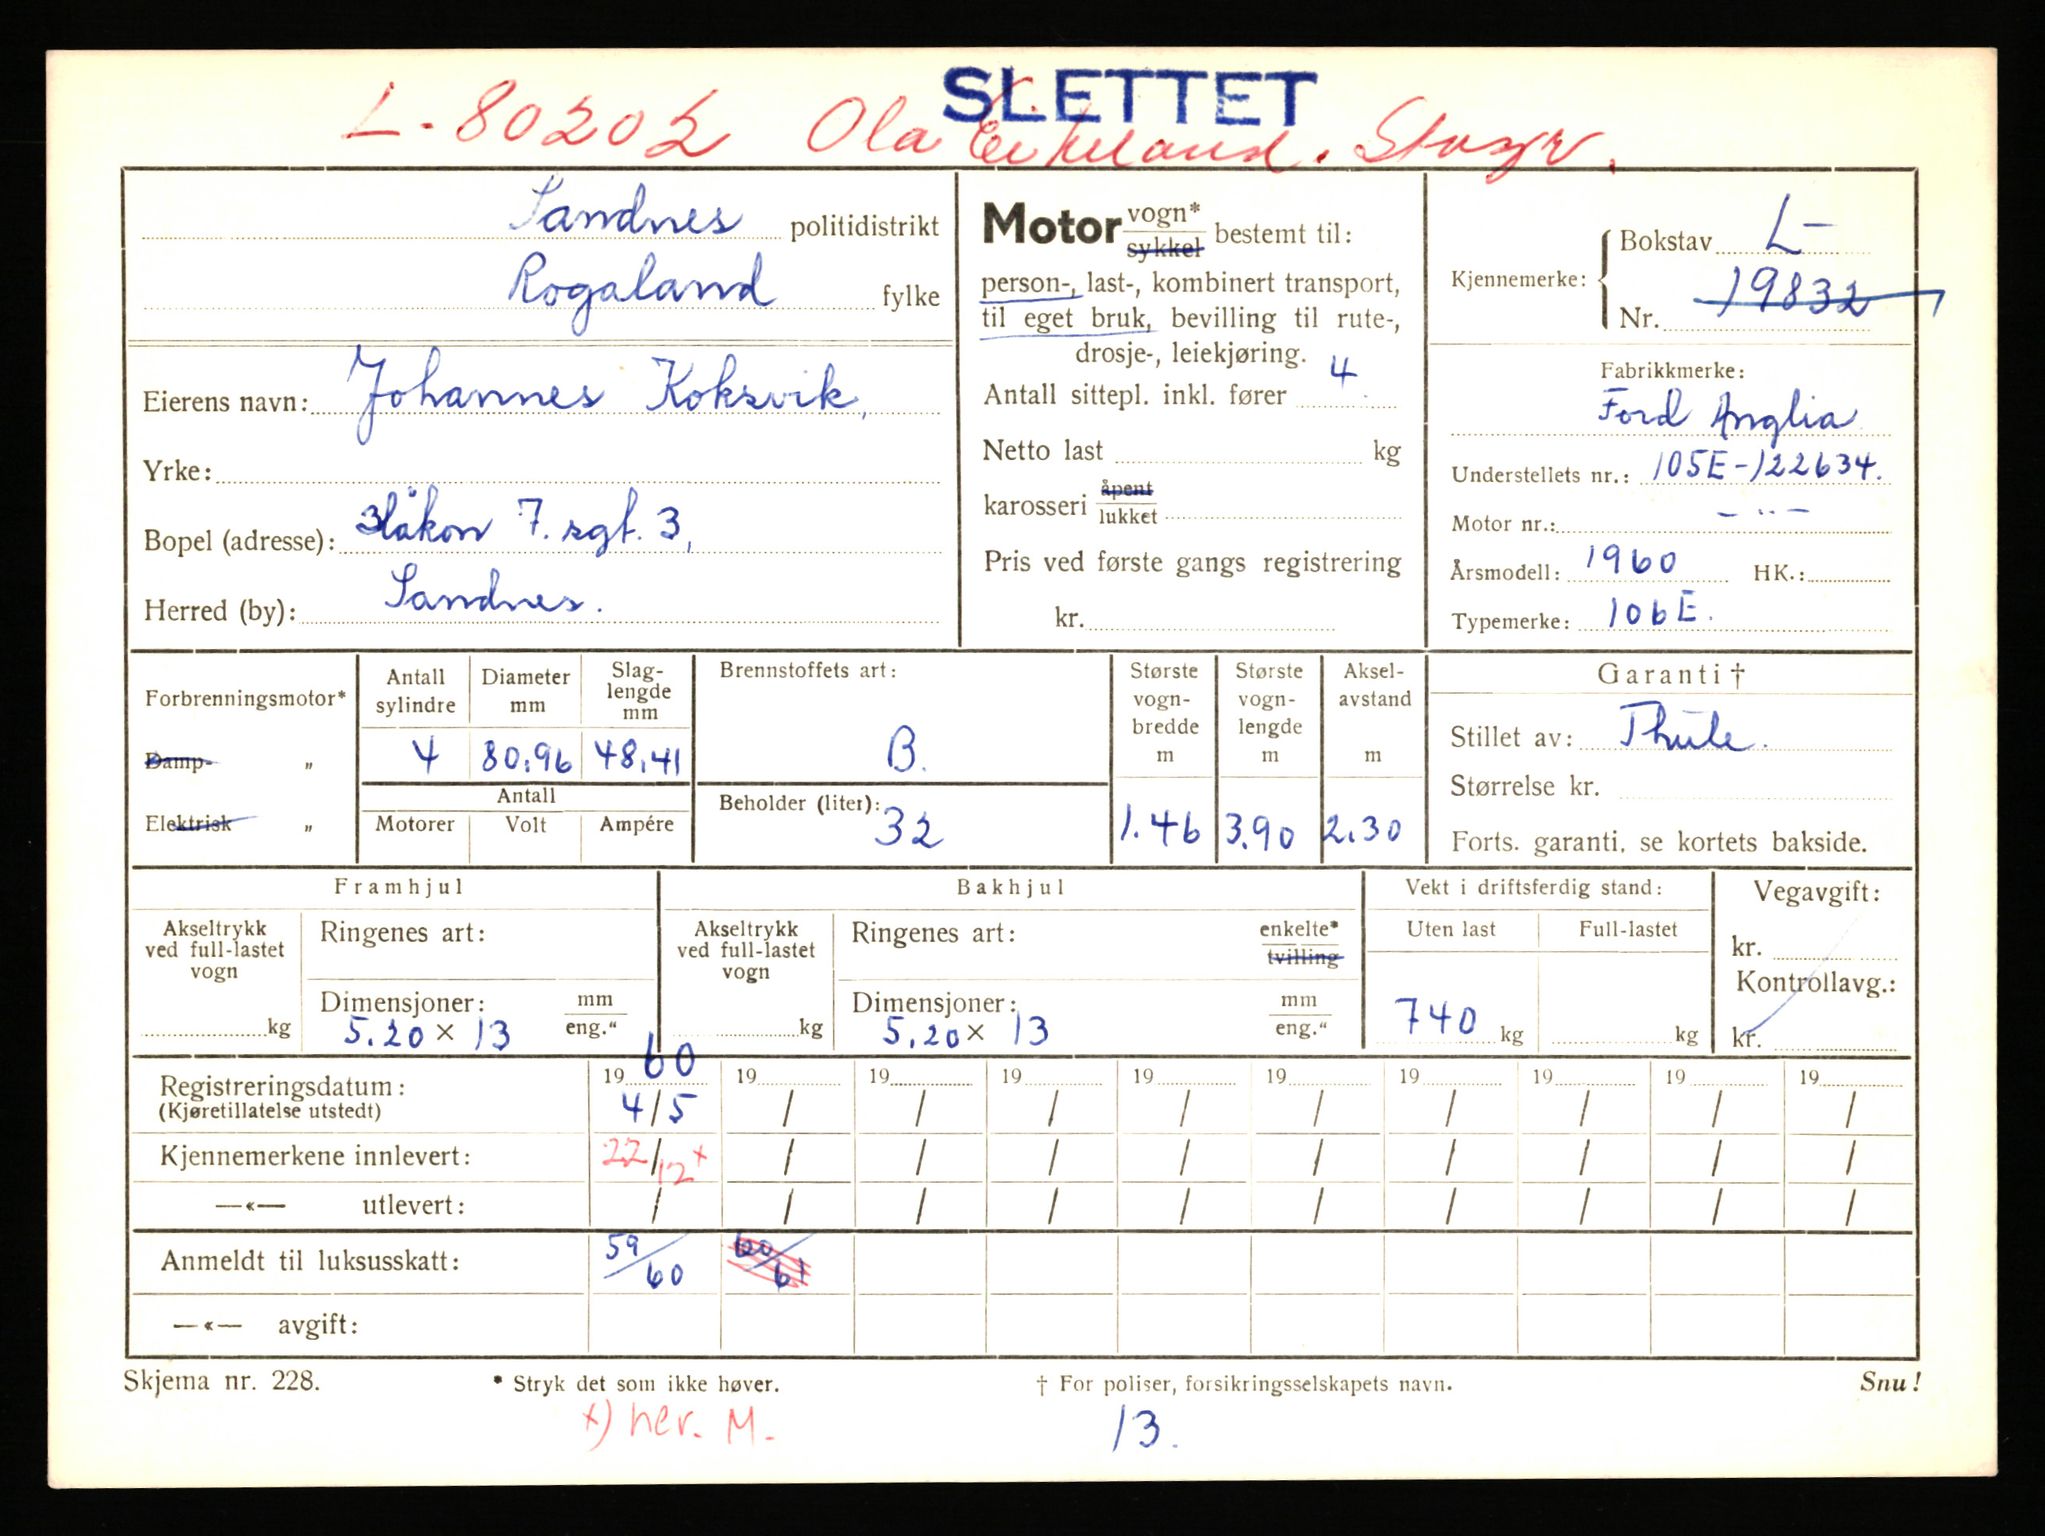 SLETTET
L-80202 Ola Eikeland.
Sandnes politidistrikt
Rogaland fylke
Eierens navn: Johannes Koksvik,
Yrke:
Bopel (adresse): Håkon 7. sgt. 3,
Herred (by): Sandnes.
Motor vogn* sykkel bestemt til:
person-, last-, kombinert transport,
til eget bruk, bevilling til rute-,
drosje-, leiekjøring.
Antall sittepl. inkl. fører 4
Netto last kg
karosseri åpent lukket
Pris ved første gangs registrering
kr.
Kjennemerke: Bokstav L-
Nr. 19832
Fabrikkmerke:
Ford Anglia
Understellets nr.: 105E-122634.
Motor nr.: - " -
Årsmodell: 1960 HK.:
Typemerke: 106E.
Forbrenningsmotor*
Damp- „
Elektrisk „
Antall sylindre
4
Diameter mm
80.96
Slag-lengde mm
48.41
Antall
Motorer Volt Ampére
Brennstoffets art:
B.
Beholder (liter):
32
Største vogn-bredde m
1.46
Største vogn-lengde m
3.90
Aksel-avstand m
2.30
Garanti †
Stillet av: Thule.
Størrelse kr.
Forts. garanti, se kortets bakside.
Framhjul
Akseltrykk ved full-lastet vogn
kg
Ringenes art:
Dimensjoner: mm eng."
5.20 × 13
Bakhjul
Akseltrykk ved full-lastet vogn
kg
Ringenes art: enkelte* tvilling
Dimensjoner: mm eng."
5.20 × 13
Vekt i driftsferdig stand:
Uten last Full-lastet
740 kg kg
Vegavgift:
kr.
Kontrollavg.:
kr.
Registreringsdatum: 19 60 19 19 19 19 19 19 19 19 19
(Kjøretillatelse utstedt) 4/5 / / / / / / / / /
Kjennemerkene innlevert: 22/12 x / / / / / / / / /
—«— utlevert: / / / / / / / / / /
Anmeldt til luksusskatt: 59/60 60/61
—«— avgift:
Skjema nr. 228. * Stryk det som ikke høver. † For poliser, forsikringsselskapets navn. Snu!
x) her. M.
13.